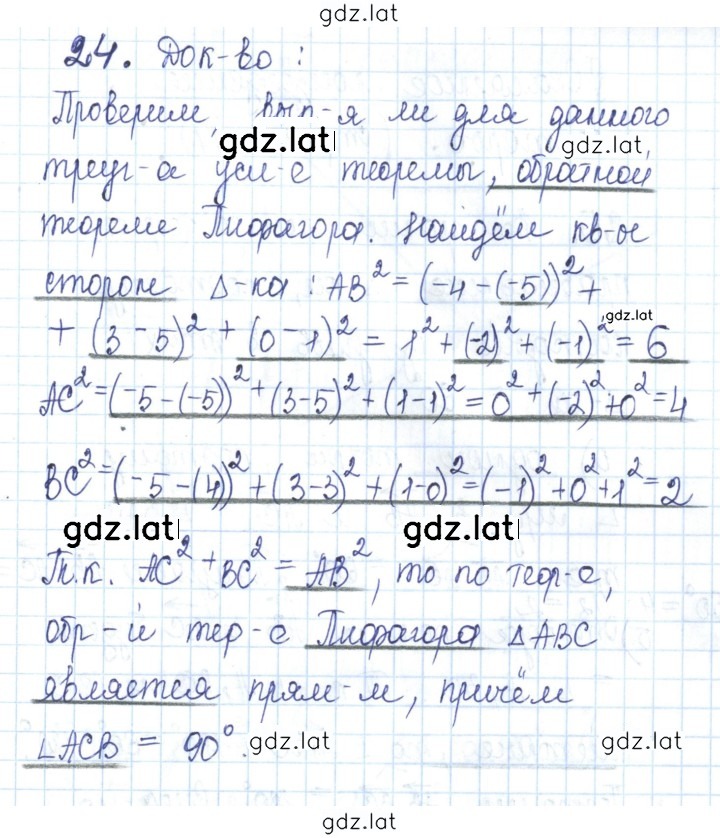 gdz.lat
24. Док-во :
Проверим, вып-я ли для данного
gdz.lat gdz.lat
треуг-а усл-е теоремы, обратной
теореме Пифагора. Найдём кв-ы
сторон Δ-ка : AB² = (-4 - (-5))² +
gdz.lat
+ (3 - 5)² + (0 - 1)² = 1² + (-2)² + (-1)² = 6
AC² = (-5 - (-5))² + (3-5)² + (1-1)² = 0² + (-2)² + 0² = 4
BC² = (-5 - (4))² + (3-3)² + (1-0)² = (-1)² + 0² + 1² = 2
gdz.lat gdz.lat
Т.к. AC² + BC² = AB², то по теор-е,
обр-й тер-е Пифагора Δ ABC
является прям-м, причём
∠ACB = 90°. gdz.lat gdz.lat
gdz.lat